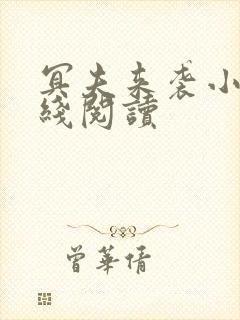 冥夫来袭小
綫閱讀
曾華倩